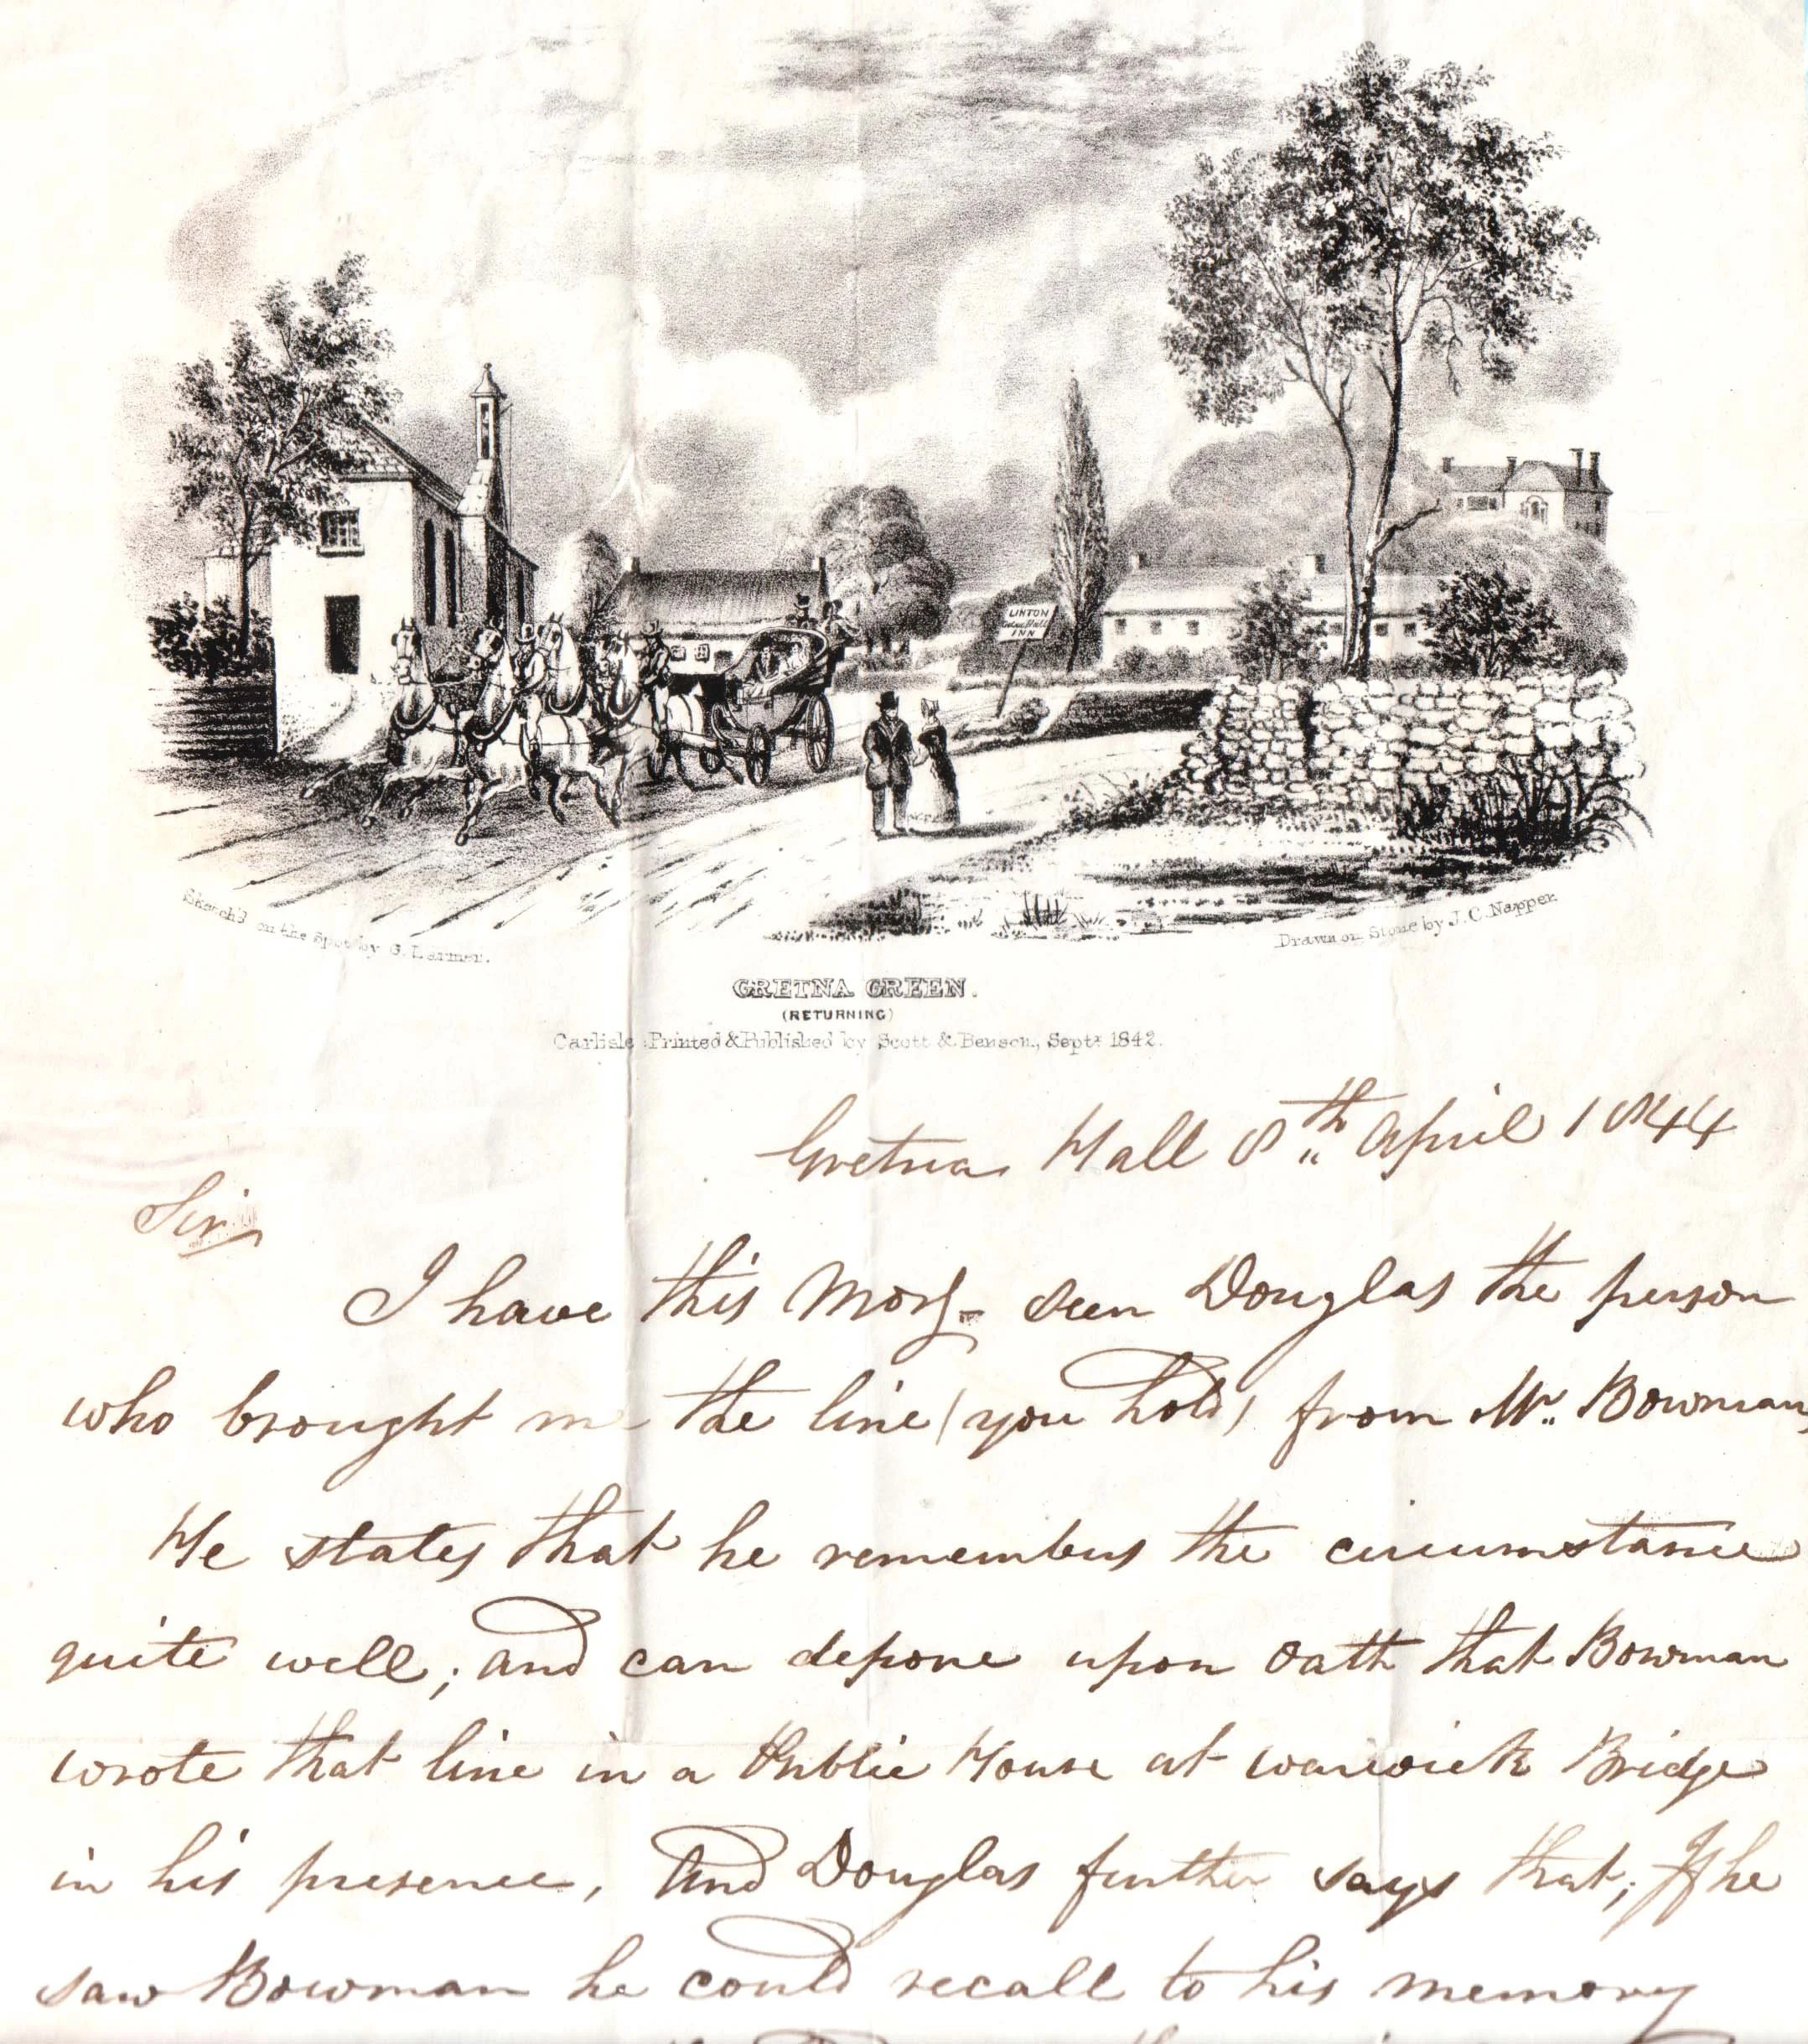 LINTON
Gretna Hall
INN
Sketch'd on the Spot by G. Larmer.
Drawn on Stone by J. C. Napper.
GRETNA GREEN.
(RETURNING)
Carlisle Printed & Published by Scott & Benson, Septr. 1842.
Gretna Hall 8th April 1844
Sir
I have this Morg- seen Douglas the person
who brought me the line (you hold) from Mr. Bowman,
He states that he remembers the circumstance
quite well; and can depone upon Oath that Bowman
wrote that line in a Public House at Warwick Bridge
in his presence, And Douglas further says that; If he
saw Bowman he could recall to his memory